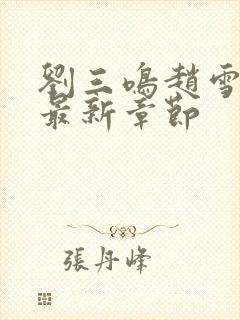 劉三鳴趙雪
最新章節
張丹峰